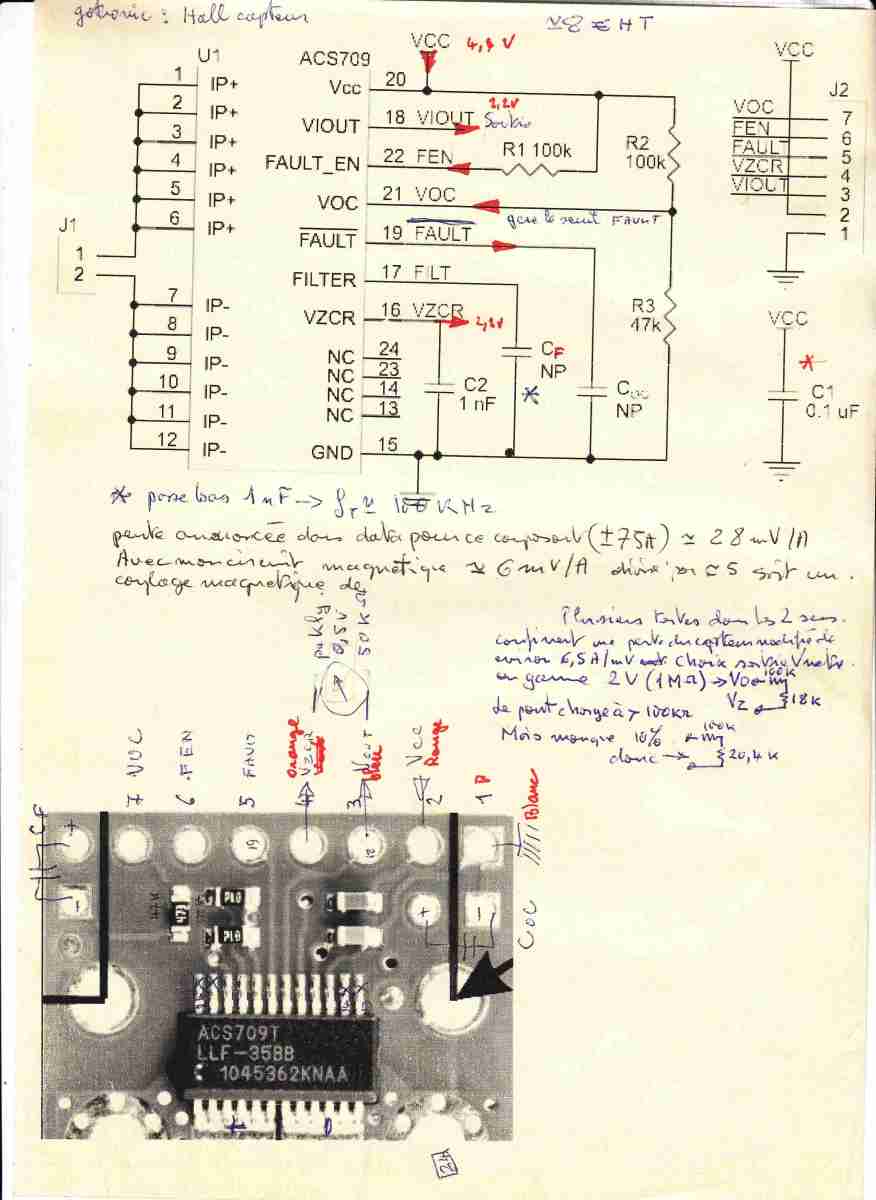 gotronic : Hall capteur
HT
U1
ACS709
VCC 4,8 V
VCC
J2
1 IP+
2 IP+
3 IP+
4 IP+
5 IP+
6 IP+
J1
1
2
7 IP-
8 IP-
9 IP-
10 IP-
11 IP-
12 IP-
Vcc 20
VIOUT 18 VIOUT 2,2V Sortie
FAULT_EN 22 FEN R1 100k
R2
100k
VOC 21 VOC
gere le seuil FAULT
FAULT 19 FAULT
FILTER 17 FILT
VZCR 16 VZCR 2,2V
NC 24
NC 23
NC 14
NC 13
GND 15
C2
1 nF
CF
NP
*
Coc
NP
R3
47k
VOC 7
FEN 6
FAULT 5
VZCR 4
VIOUT 3
2
1
VCC
*
C1
0.1 uF
* passe bas 1nF → 100 KHz
pente annoncée dans data pour ce composant (±75A) ≃ 28 mV/A
Avec mon circuit magnétique ≃ 6mV/A divisé par ≃ 5 soit un
couplage magnetique de
Plusieurs tests dans les 2 sens
confirment une pente du capteur modifié de
environ 6,5A/mV choix sortie Vmetre
en gamme 2V (1MΩ) → 100K
18K
de pont chargé à > 100KΩ
Mais manque 10% 100K
donc → 20,4K
0,5V
50K
7 VOC
6 FEN
5 FAULT
4 VZCR
orange
3 VOUT
bleu
2 VCC
Rouge
1
Blanc
CF
+
-
19
473
+
-
COC
ACS709T
LLF-35BB
1045362KNAA
+
24